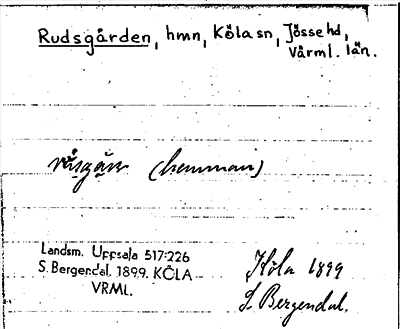 Rudsgården, hmn, Köla sn, Jösse hd,
Värml. län.
(hemman)
Landsm. Uppsala 517:226
S. Bergendal. 1899. KÖLA
VRML.
Köla 1899
S. Bergendal.